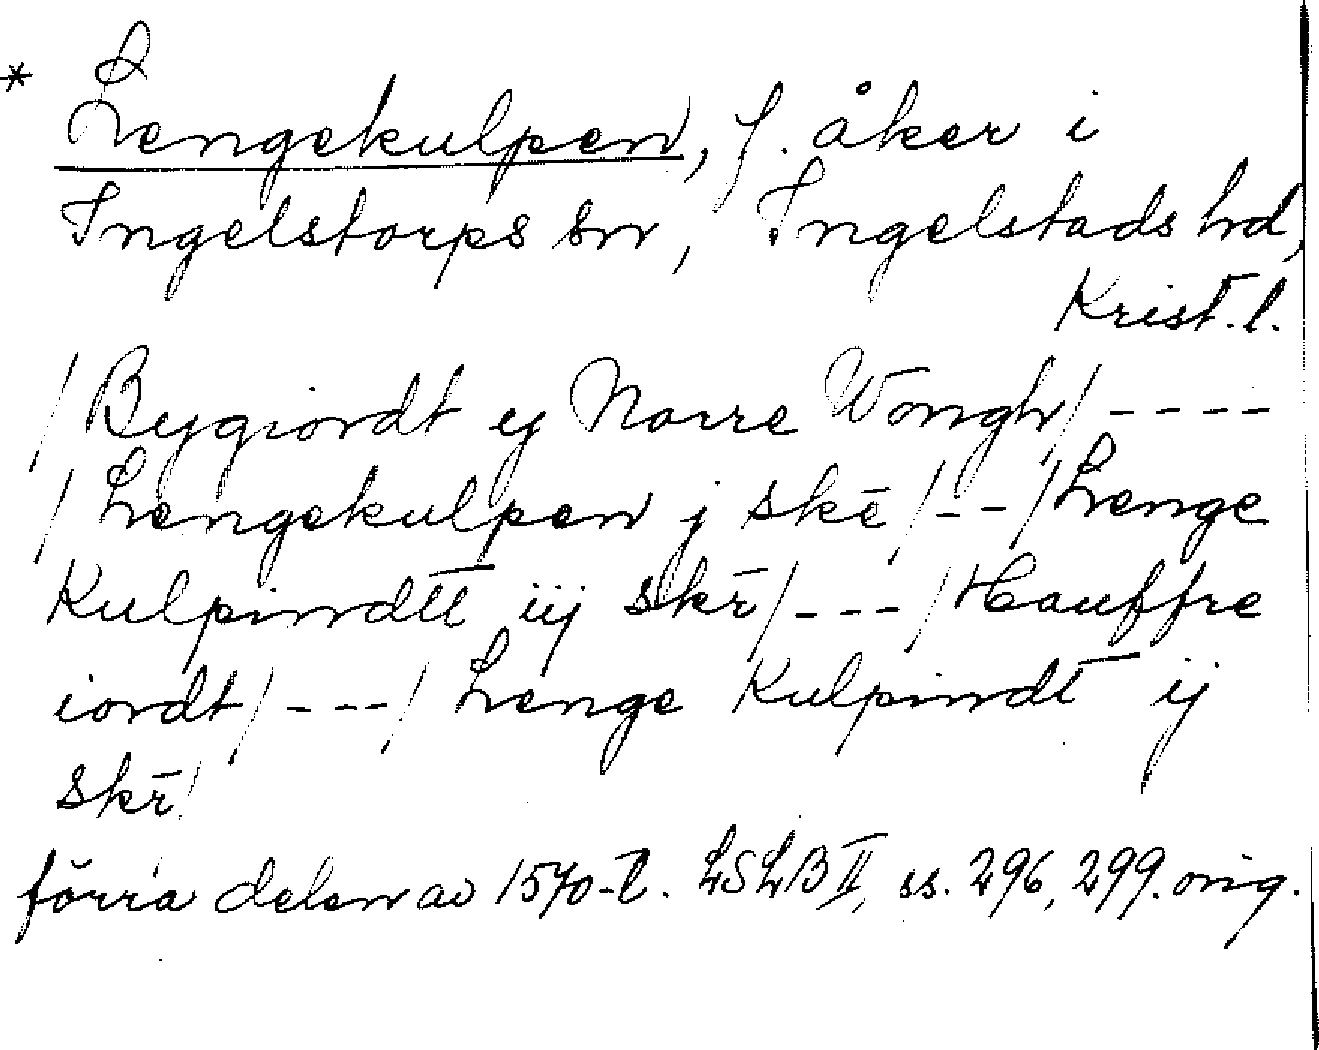 * Lengekulpen, f. åker i
Ingelstorps sn, Ingelstads hd,
Krist. l.
/Bygiordt ij Norre Wongh/----
/Lengekulpen j skē/--/Lenge
Kulpindtt iij skr̄/---/Hauffre
iordt/---/Lenge Kulpindt ij
skr̄/
förra delen av 1570-t. LSLB II, ss. 296, 299. orig.